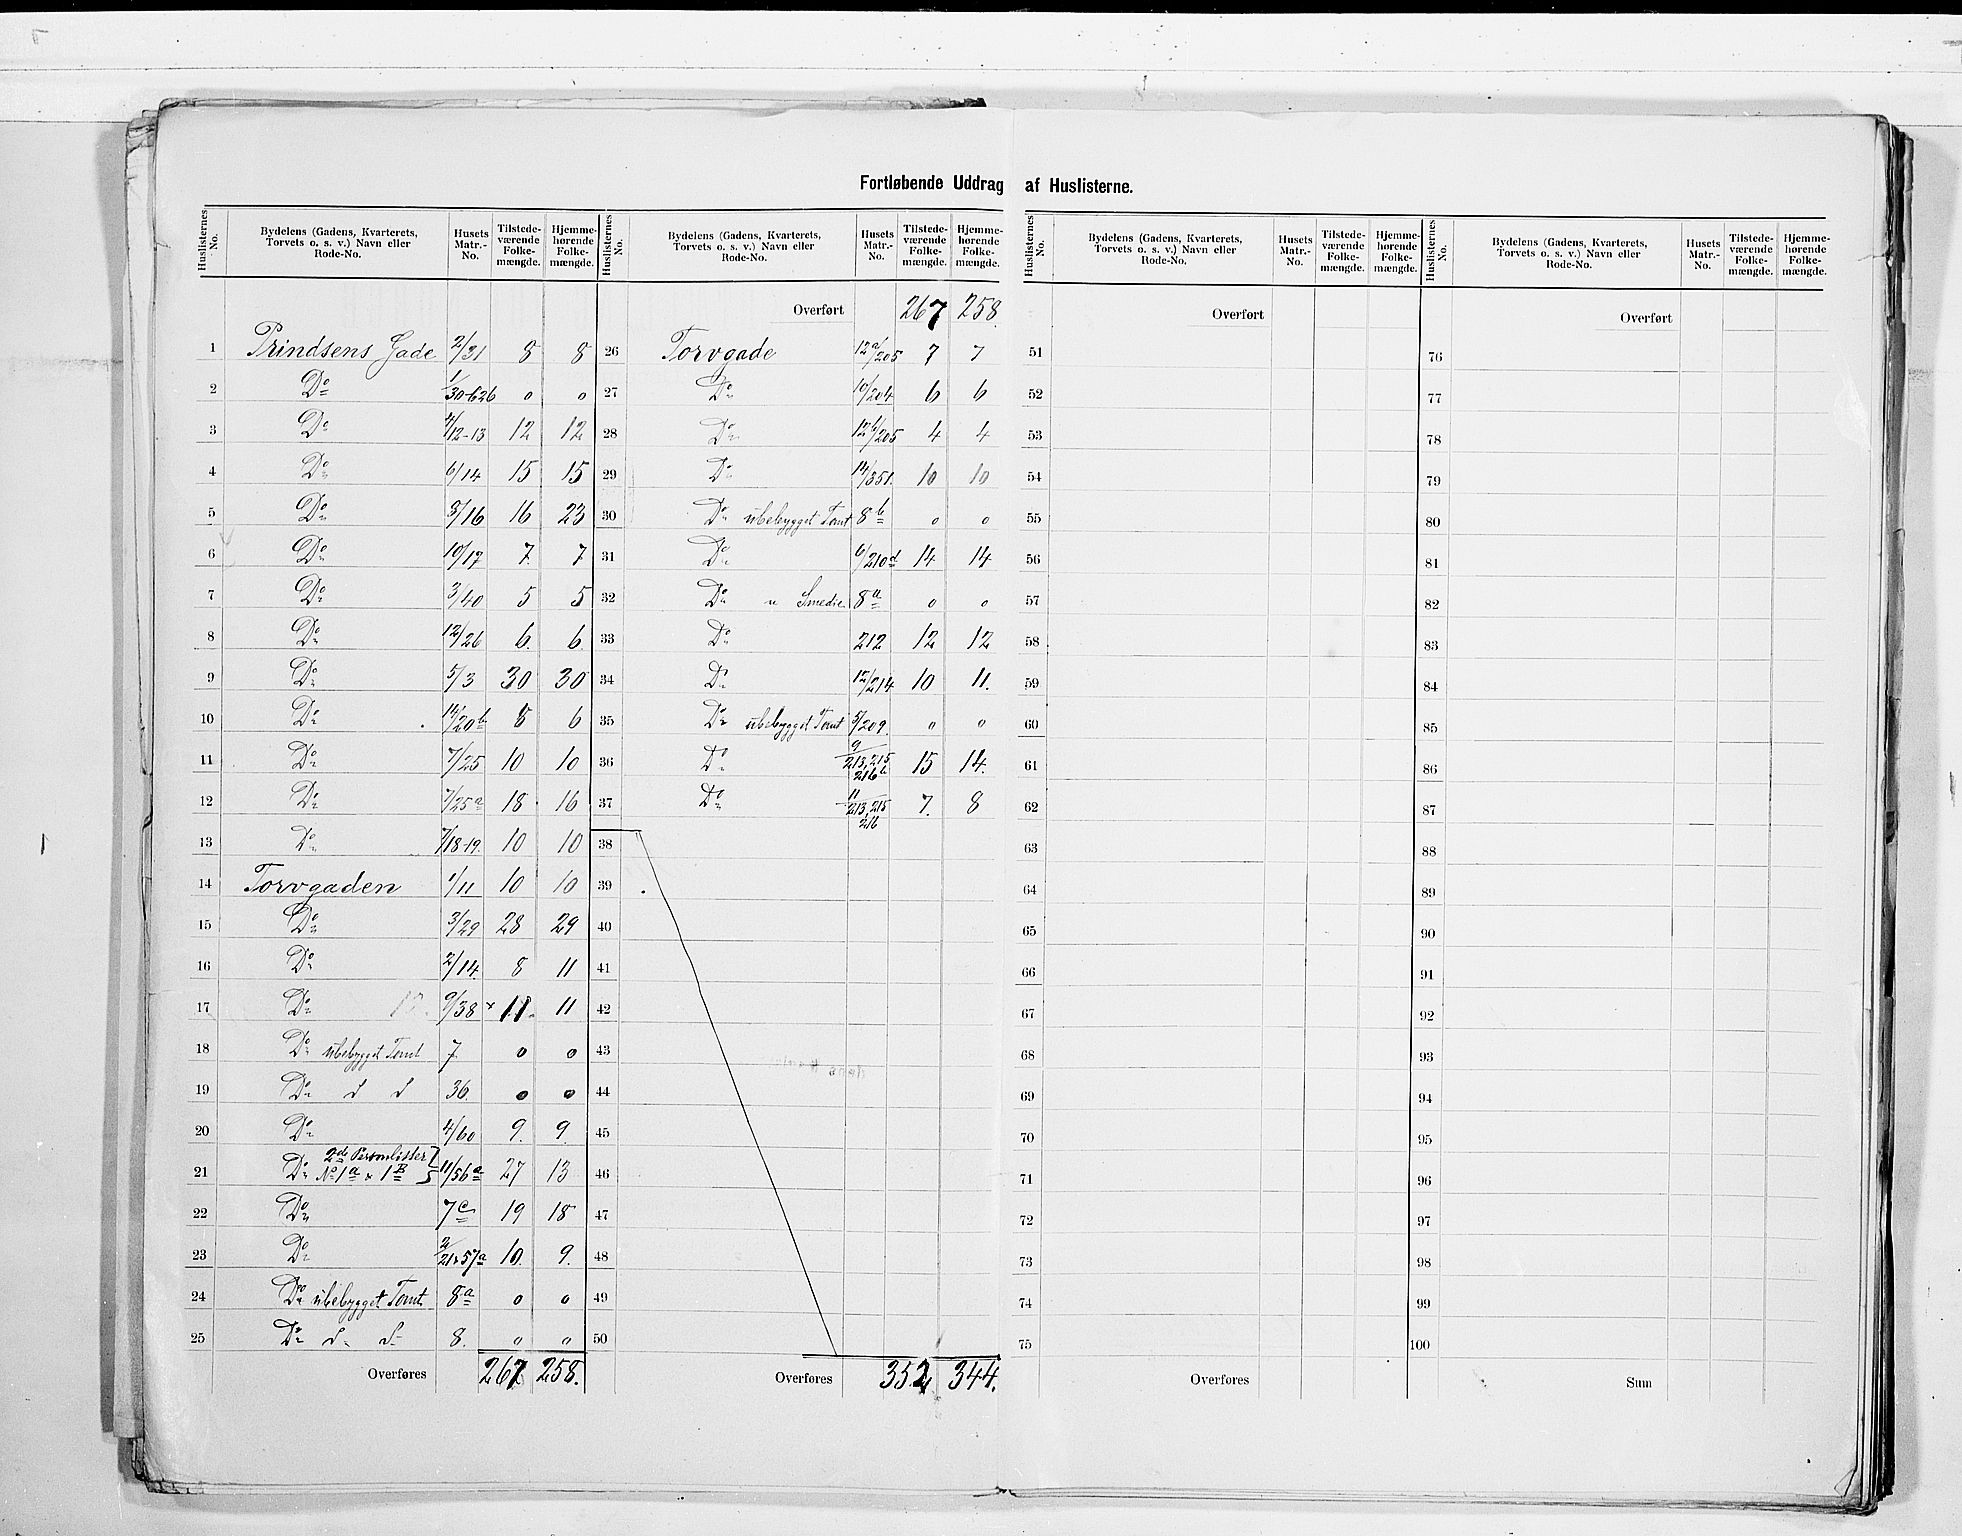 Fortløbende Uddrag af Huslisterne.
Huslisternes No. | Bydelens (Gadens, Kvarterets, Torvets o. s. v.) Navn eller Rode-No. | Husets Matr.-No. | Tilstedeværende Folkemængde. | Hjemmehørende Folkemængde.
1 Prindsens Gade 2/31 8 8
2 Do 1/30-626 0 0
3 Do 4/12-13 12 12
4 Do 6/14 15 15
5 Do 3/16 16 23
6 Do 10/17 7. 7
7 Do 3/40 5 5
8 Do 12/26 6. 6
9 Do 5/3 30 30
10 Do 14/20b 8 6
11 Do 7/25 10 10
12 Do 7/25a 18 16
13 Do 7/18-19. 10 10
14 Torvgaden 1/11 10 10
15 Do 3/29 28 29
16 Do 2/14. 8 11
17 Do 9/38 × 11. 11
18 Do ubebygget Tomt 7. 0 0
19 Do d d 36. 0 0
20 Do 4/60 9. 9.
21 Do 2de Personlister No 1a & 1B 11/56a 27 13
22 Do 7c 19 18
23 Do 2/21&57a 10. 9.
24 Do ubebygget Tomt 8a 0 0
25 Do d d 8. 0 0
Overføres 267 258.
Huslisternes No. | Bydelens (Gadens, Kvarterets, Torvets o. s. v.) Navn eller Rode-No. | Husets Matr.-No. | Tilstedeværende Folkemængde. | Hjemmehørende Folkemængde.
Overført 267 258.
26 Torvgade 12a/205 7 7
27 Do 10/204 6 6
28 Do 12b/205 4 4
29 Do 14/351. 10 10
30 Do ubebygget Tomt 8b 0 0
31 Do 6/210d 14 14
32 Do " Smedie 8a 0 0
33 Do 212 12 12
34 Do 12/214 10 11.
35 Do ubebygget Tomt 5/209. 0 0
36 Do 9/213, 215 216b 15 14.
37 Do 11/213, 215 216 7. 8
38
39
40
41
42
43
44
45
46
47
48
49
50
Overføres 352 344.
Huslisternes No. | Bydelens (Gadens, Kvarterets, Torvets o. s. v.) Navn eller Rode-No. | Husets Matr.-No. | Tilstedeværende Folkemængde. | Hjemmehørende Folkemængde.
Overført
51
52
53
54
55
56
57
58
59
60
61
62
63
64
65
66
67
68
69
70
71
72
73
74
75
Overføres
Huslisternes No. | Bydelens (Gadens, Kvarterets, Torvets o. s. v.) Navn eller Rode-No. | Husets Matr.-No. | Tilstedeværende Folkemængde. | Hjemmehørende Folkemængde.
Overført
76
77
78
79
80
81
82
83
84
85
86
87
88
89
90
91
92
93
94
95
96
97
98
99
100
Sum